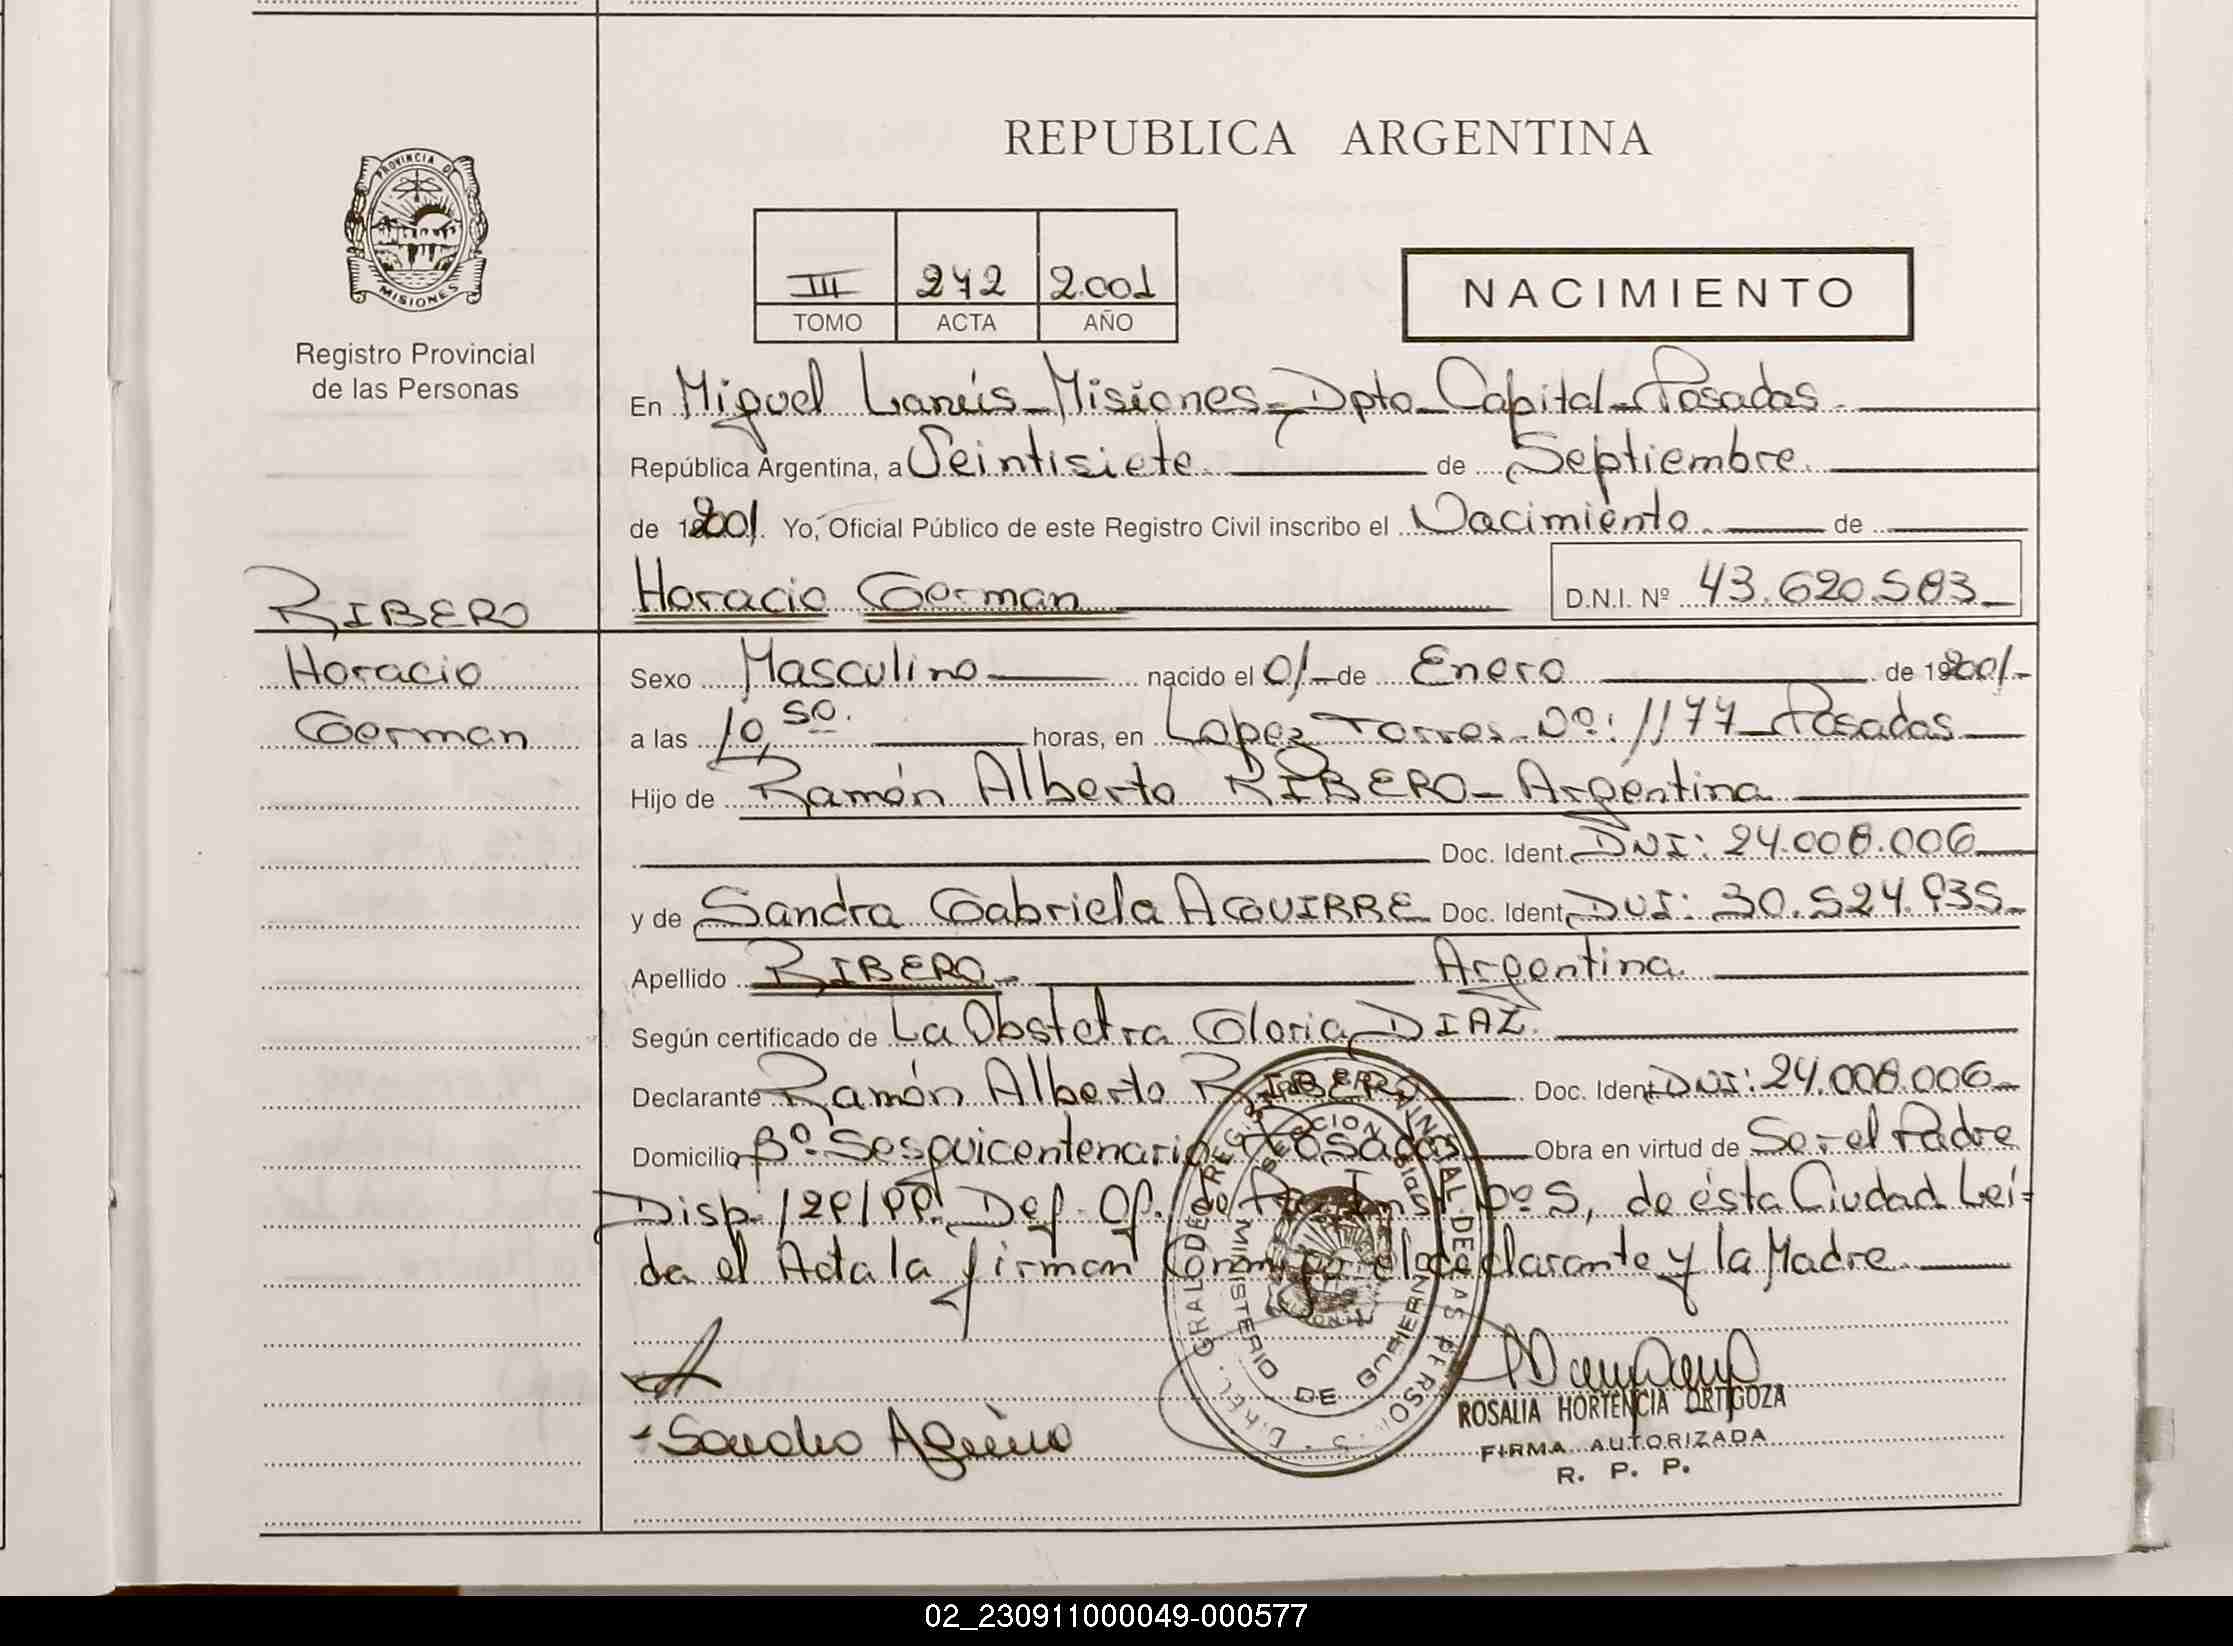 REPUBLICA ARGENTINA
PROVINCIA DE
MISIONES
Registro Provincial
de las Personas
III 272 2.001
TOMO ACTA AÑO
NACIMIENTO
En Miguel Lanús - Misiones - Dpto - Capital - Posadas.
República Argentina, a Veintisiete de Septiembre.
de 2001. Yo, Oficial Público de este Registro Civil inscribo el Nacimiento. de
RIBERO
Horacio German
D.N.I. Nº 43.620.583
Horacio
German
Sexo Masculino nacido el 01 - de Enero de 2001.-
a las 10,50. horas, en Lopez Torres Nº: 1177 - Posadas
Hijo de Ramón Alberto RIBERO - Argentina
Doc. Ident. DNI: 24.008.006
y de Sandra Gabriela AGUIRRE Doc. Ident. DNI: 30.524.935
Apellido RIBERO - Argentina.
Según certificado de La Obstetra Gloria DIAZ.
Declarante Ramón Alberto RIBERO Doc. Ident. DNI: 24.008.006
Domicilio Bº Sesquicentenario - Posadas Obra en virtud de Ser el Padre
Disp. 129/99. Def. Of. de Inst. Nº 5, de ésta Ciudad Leí=
da el Acta la firman Conmigo el declarante y la Madre.
DIREC. GRAL. DE REG. PROVINCIAL DE LAS PERSONAS
MINISTERIO DE GOBIERNO
ROSALIA HORTENCIA ORTIGOZA
FIRMA AUTORIZADA
R. P. P.
02_230911000049-000577